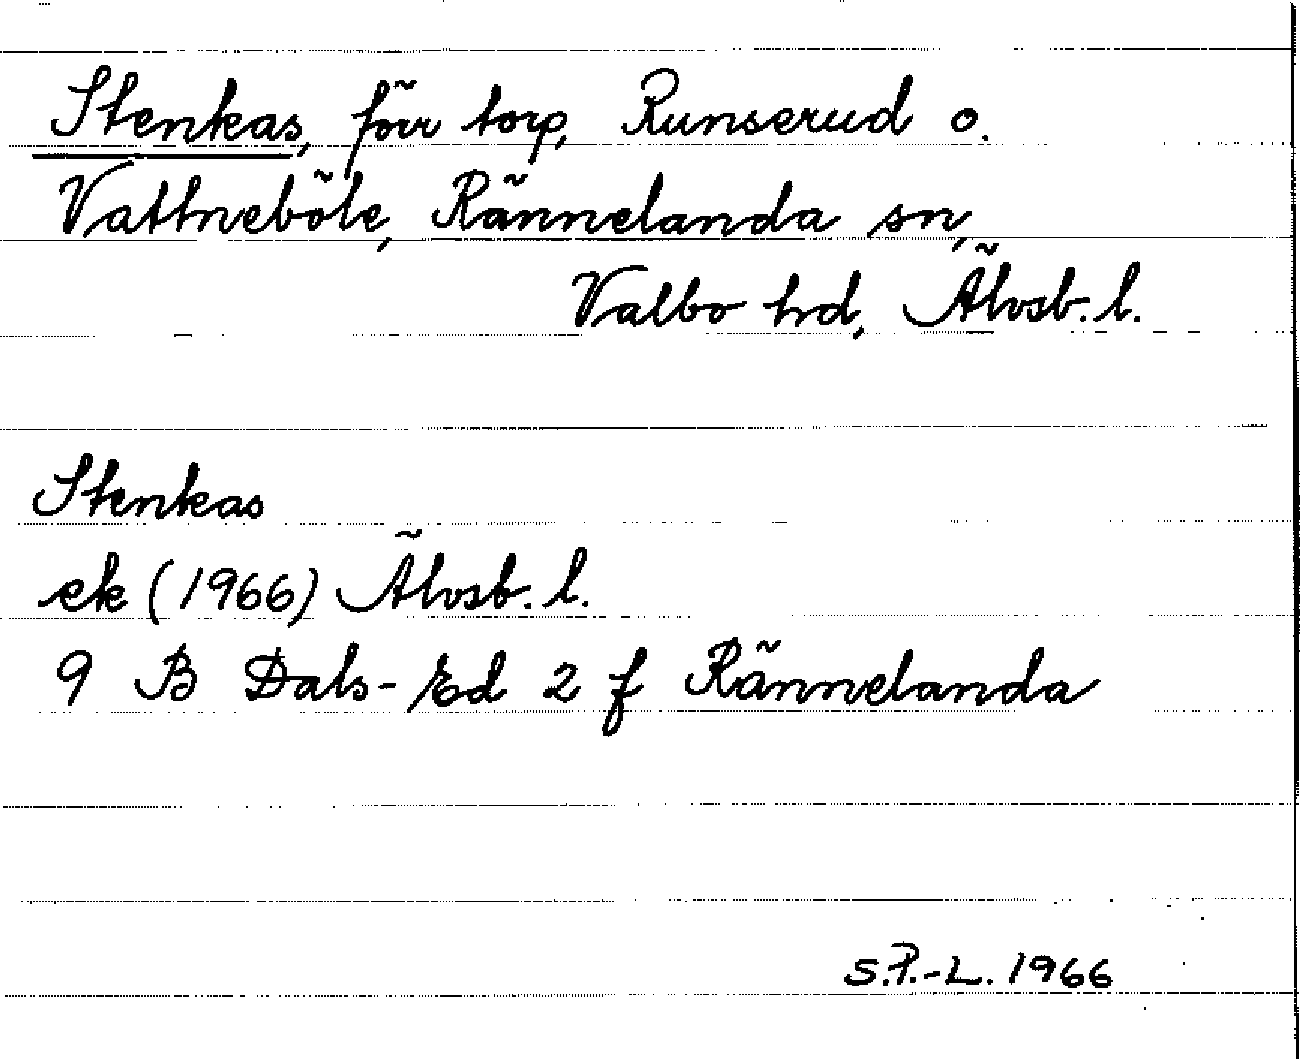 Stenkas, förr torp, Runserud o.
Vattneböle, Rännelanda sn,
Valbo hd, Älvsb. l.
Stenkas
ek (1966) Älvsb. l.
9 B Dals-Ed 2 f Rännelanda
S.P.-L. 1966